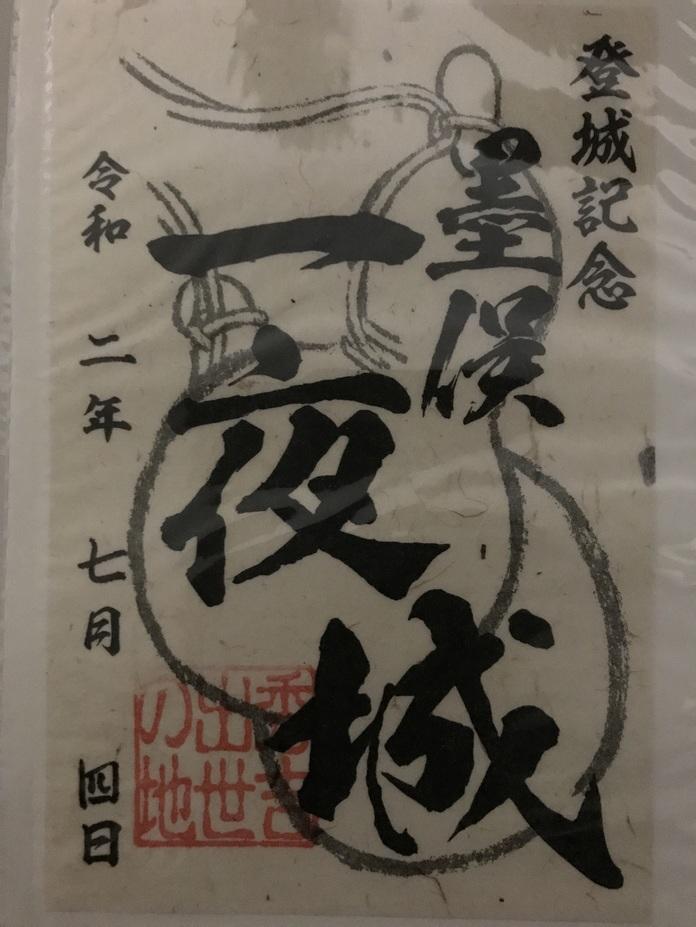 登城記念
墨俣
一夜
城
令和 二年 七月 四日
秀吉
出世
の地